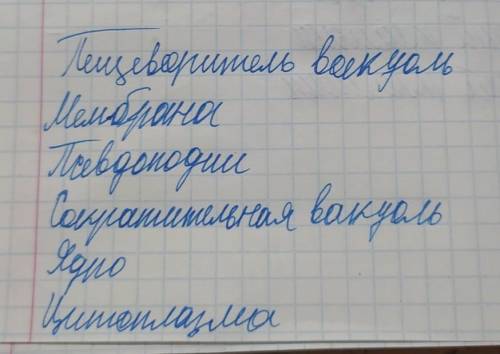 Пещеваритель вакуоль
Мембрана
Псевдоподии
Сократительная вакуоль
Ядро
Цитоплазма